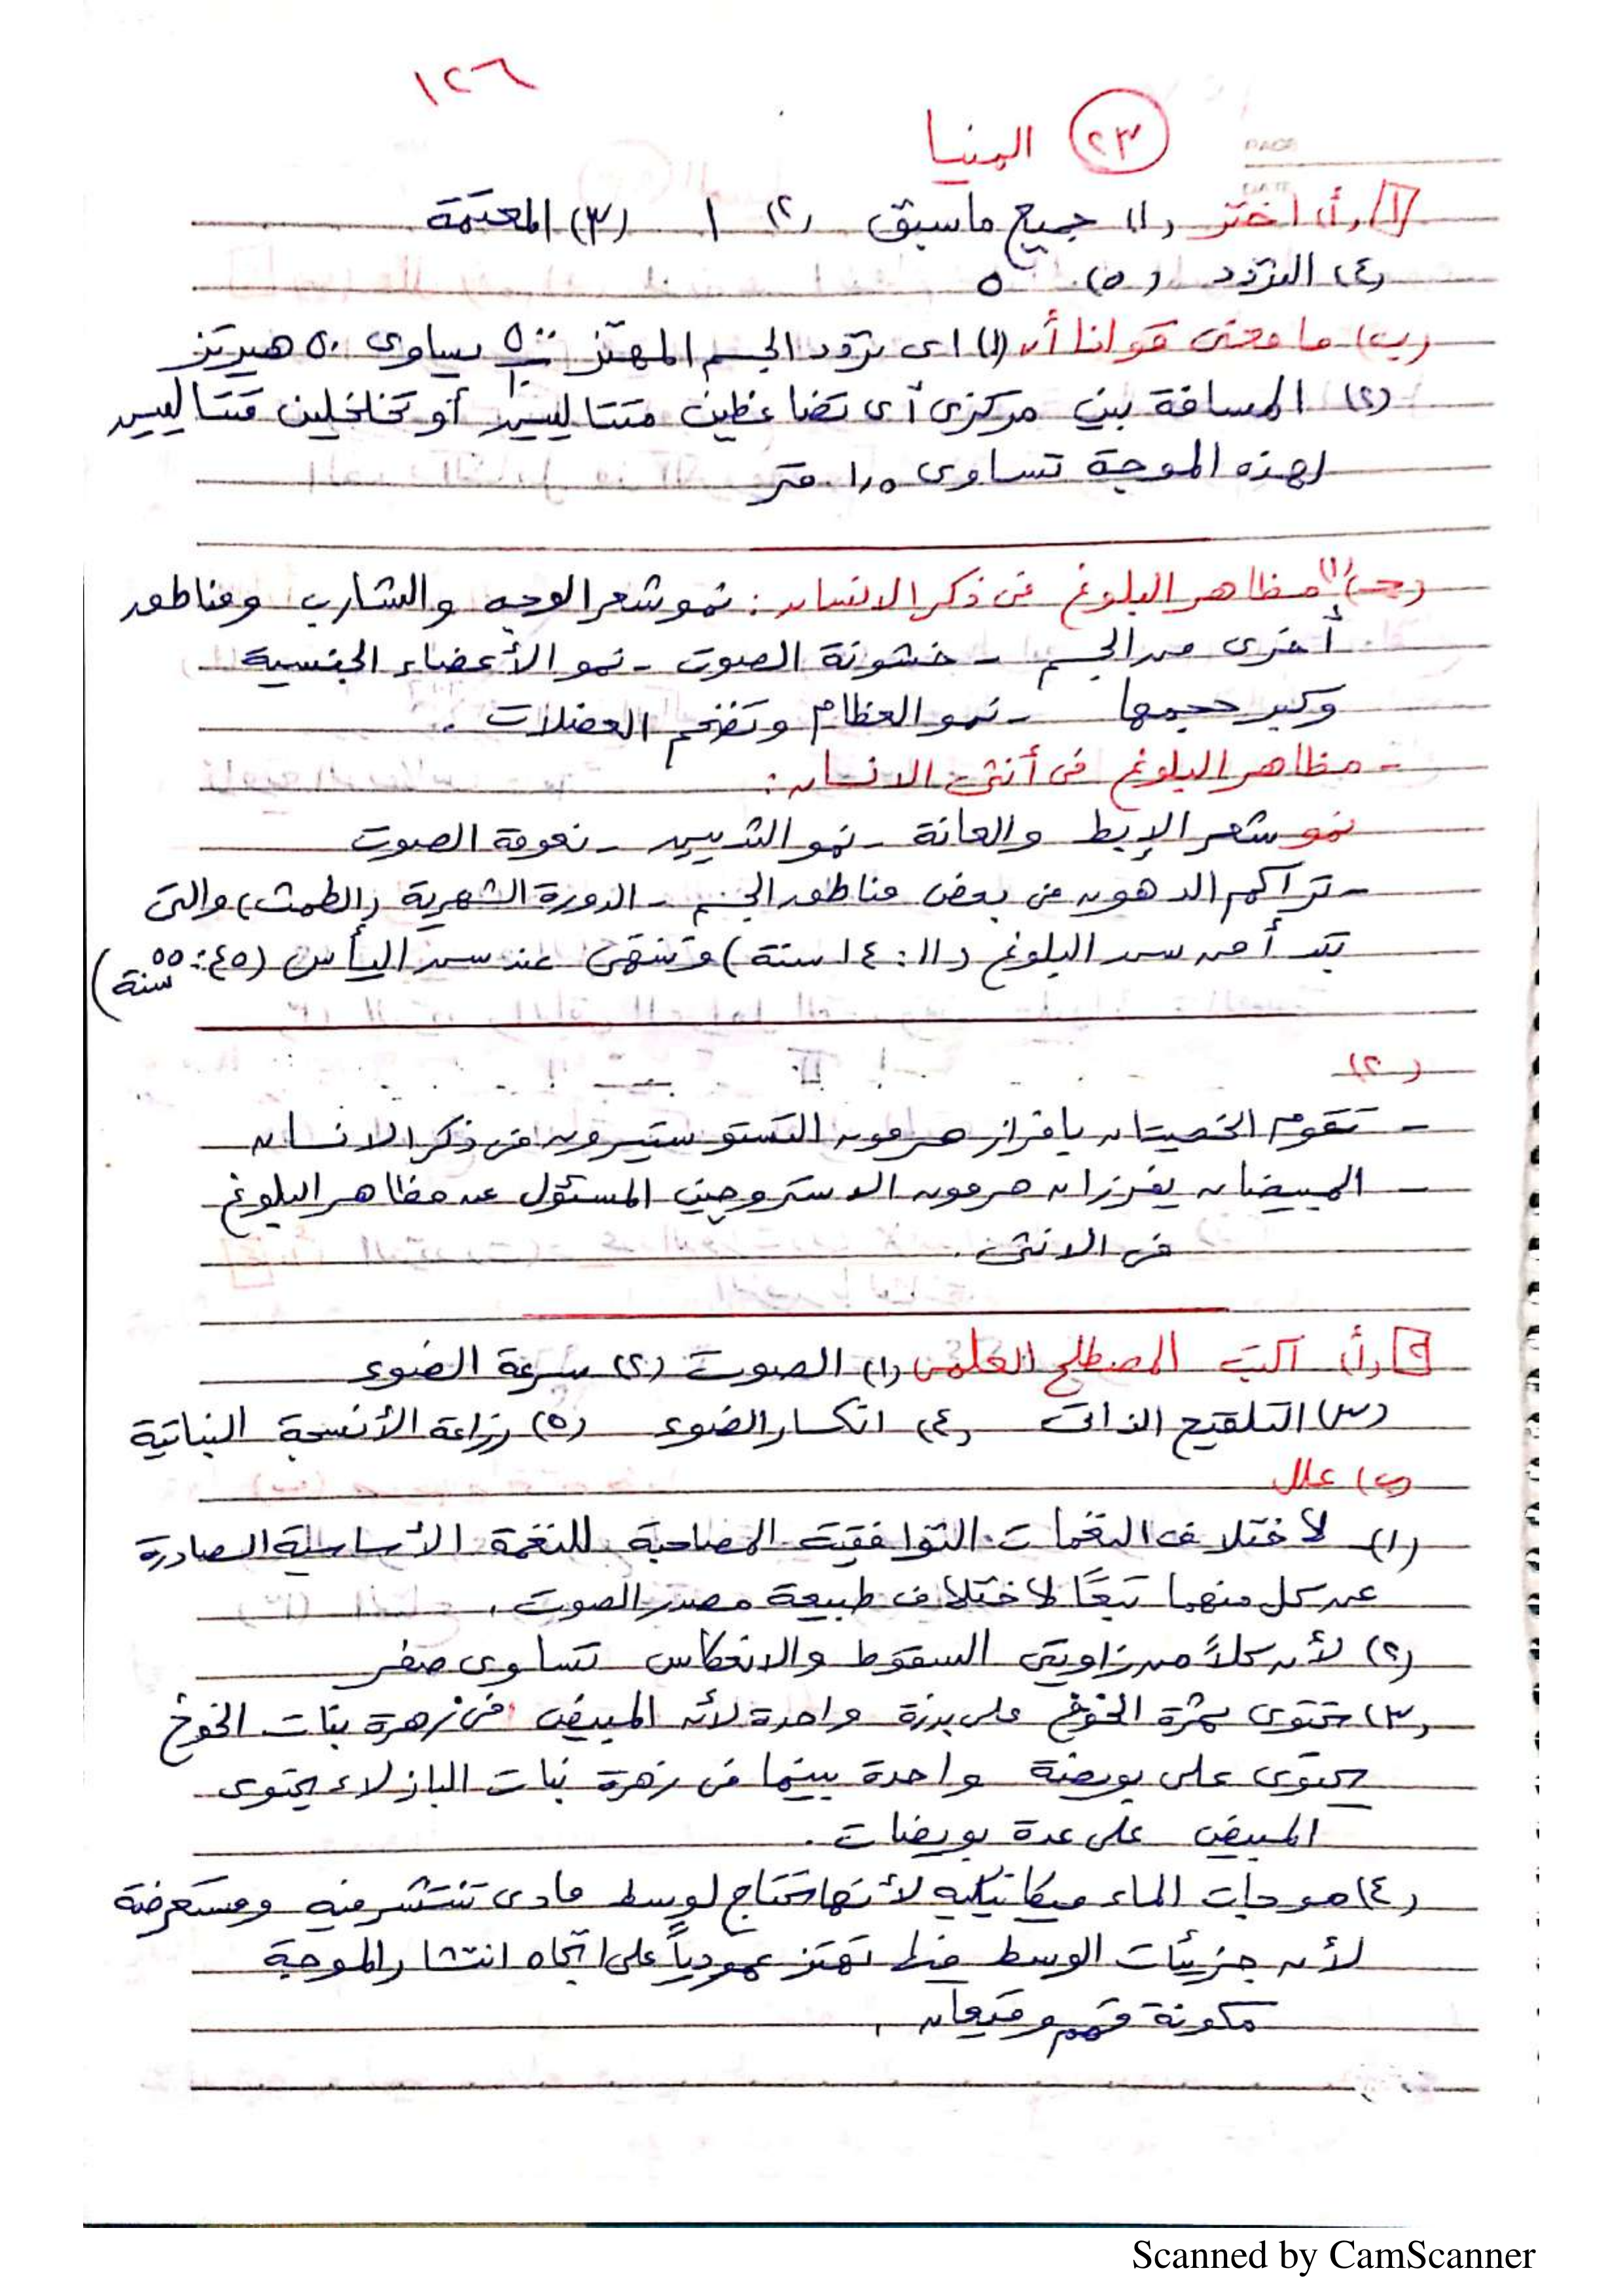 ١٢٦
(٢٣) المنيا
PAGE
DATE
[١] (أ) اختر (١) جميع ماسبق (٢) ١ (٣) المعتمة
(٤) التردد (٥) ٥
(ب) ما معنى قولنا أن (١) اى تردد الجسم المهتز ٥٠٠/١٠ يساوى ٥٠ هيرتز
(٢) المسافة بين مركزى أى تضاغطين متتاليين أو تخلخلين متتاليين
لهذه الموجة تساوى ١,٥ متر
(حـ) (١) مظاهر البلوغ فى ذكر الانسان : نمو شعر الوجه والشارب ومناطق
أخرى من الجسم - خشونة الصوت - نمو الأعضاء الجنسية
وكبر حجمها - نمو العظام وتضخم العضلات .
- مظاهر البلوغ فى أنثى الانسان :
نمو شعر الإبط والعانة - نمو الثديين - نعومة الصوت
- تراكم الدهون فى بعض مناطق الجسم - الدورة الشهرية (الطمث) والتى
تبدأ من سن البلوغ (١١ : ١٤ سنة) وتنتهى عند سن اليأس (٤٥ : ٥٥ سنة)
(٢)
- تقوم الخصيتان بافراز هرمون التستوستيرون فى ذكر الانسان
- المبيضان يفرزان هرمون الاستروجين المسئول عن مظاهر البلوغ
فى الانثى .
[٢] (أ) اكتب المصطلح العلمى (١) الصوت (٢) سرعة الضوء
(٣) التلقيح الذاتى (٤) انكسار الضوء (٥) زراعة الأنسجة النباتية
(ب) علل
(١) لاختلاف النغمات التوافقية المصاحبة للنغمة الأساسية الصادرة
عن كل منهما تبعًا لاختلاف طبيعة مصدر الصوت .
(٢) لأن كلاً من زاويتى السقوط والانعكاس تساوى صفر
(٣) تحتوى ثمرة الخوخ على بذرة واحدة لأن المبيض فى زهرة نبات الخوخ
يحتوى على بويضة واحدة بينما فى زهرة نبات البازلاء يحتوى
المبيض على عدة بويضات .
(٤) موجات الماء ميكانيكية لأنها تحتاج لوسط مادى تنتشر فيه ومستعرضة
لأن جزيئات الوسط فيها تهتز عمودياً على اتجاه انتشار الموجة
مكونة قمم وقيعان .
Scanned by CamScanner